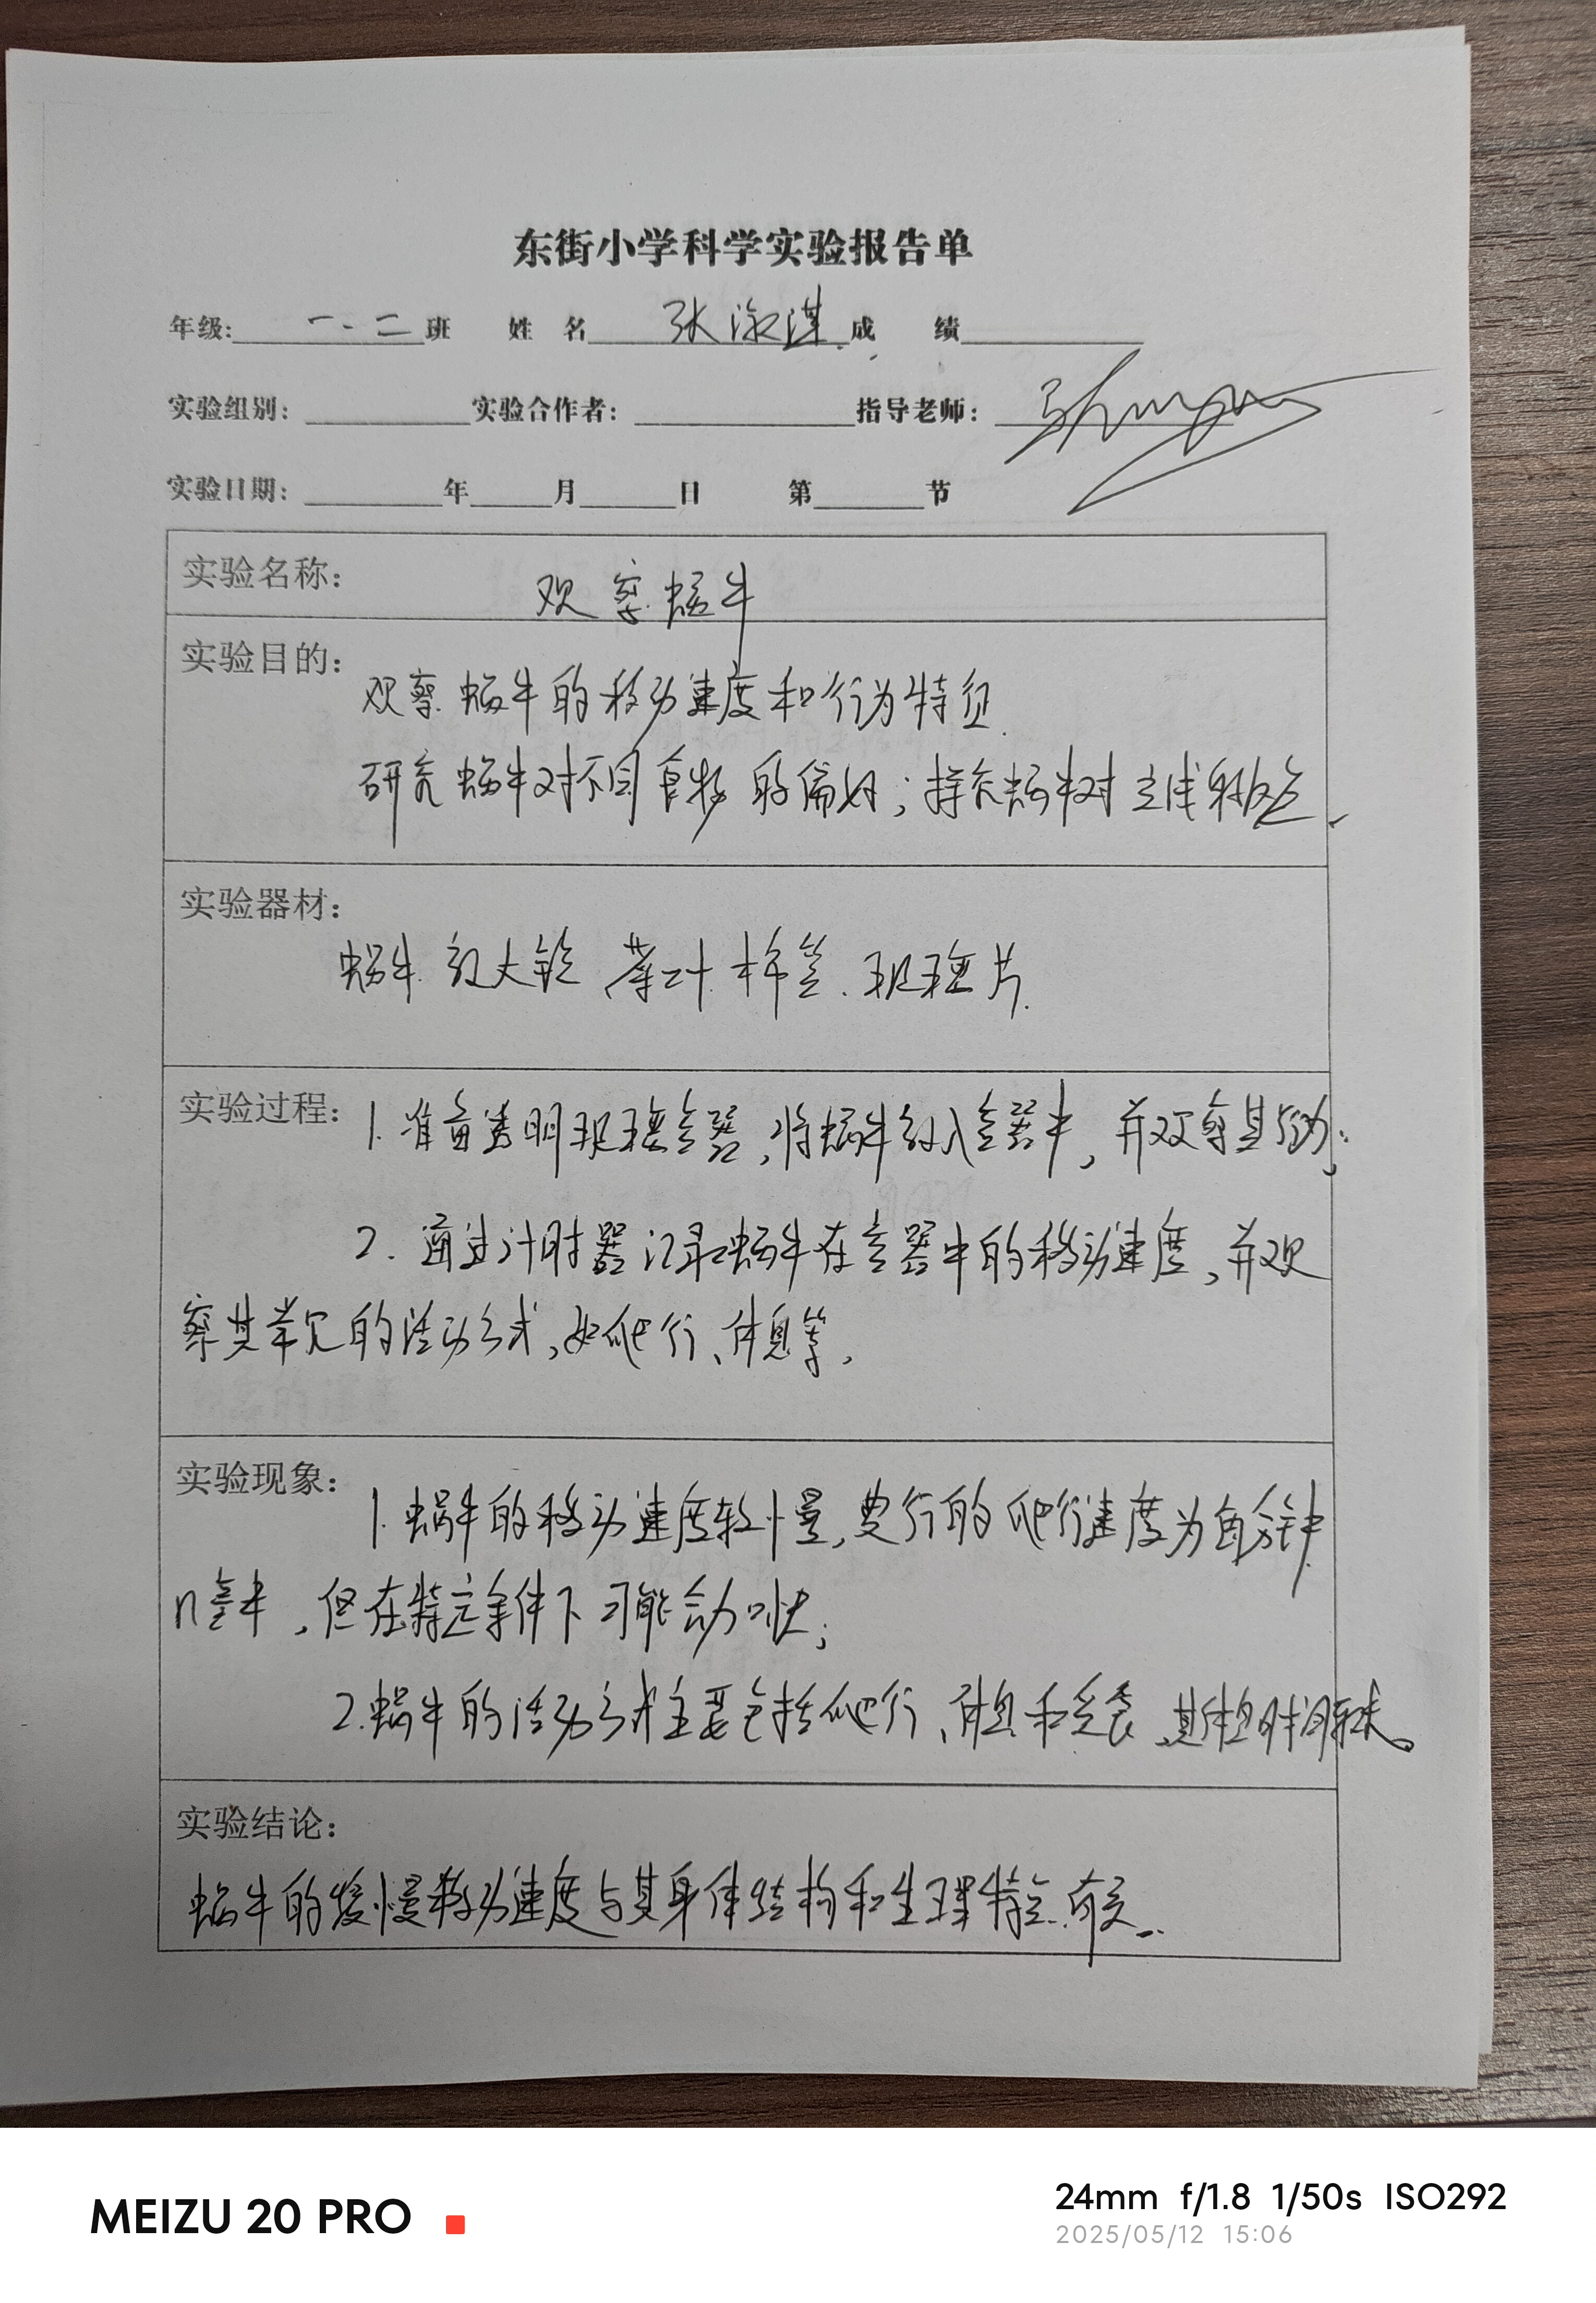 东街小学科学实验报告单
年级: 一.二 班 姓 名 张淑淇 成 绩
实验组别: 实验合作者: 指导老师:
实验日期: 年 月 日 第 节
实验名称: 观察蜗牛
实验目的:
观察蜗牛的移动速度和行为特征.
研究蜗牛对不同食物的偏好;探究蜗牛对
实验器材:
蜗牛.放大镜 菜叶.棉签.玻璃片.
实验过程: 1.准备透明玻璃容器,将蜗牛放入容器中,并观察其行动;
2.通过计时器记录蜗牛在容器中的移动速度,并观
察其常见的活动方式,如爬行、休息等,
实验现象: 1.蜗牛的移动速度较慢,爬行速度为每分钟
几毫米,但在特定条件下可能会加快;
2.蜗牛的活动方式主要包括爬行、休息和觅食,其休息时间较长。
实验结论:
蜗牛的缓慢移动速度与其身体结构和生理特点有关..
MEIZU 20 PRO
24mm f/1.8 1/50s ISO292
2025/05/12 15:06